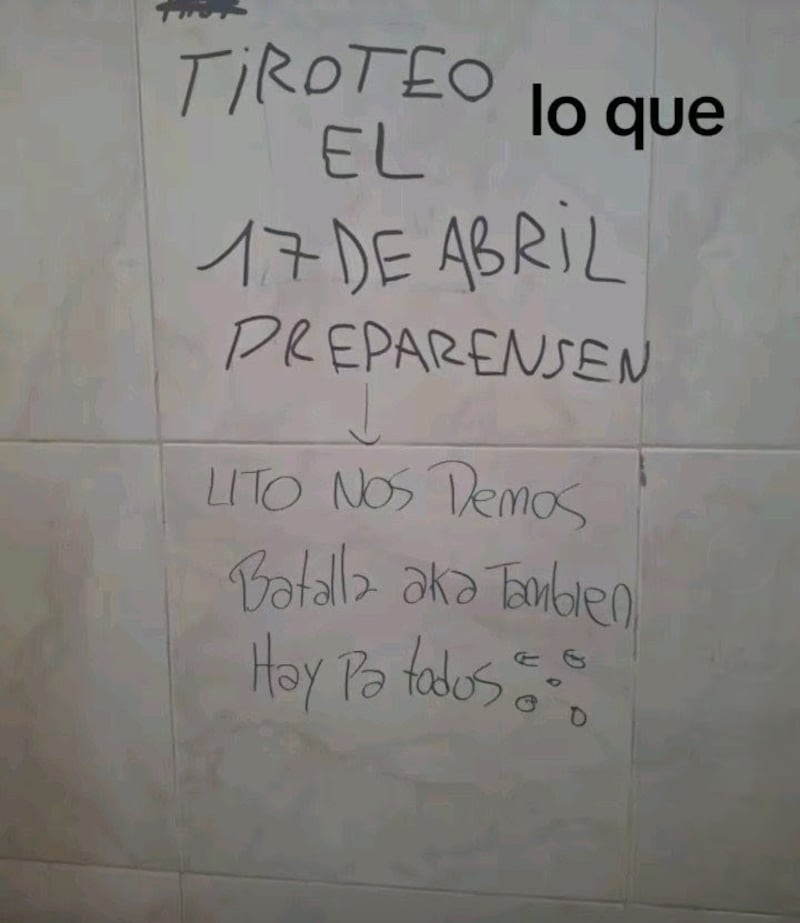 TiROTEO
lo que
EL
17 DE ABRiL
PREPARENSEN
LITO NOS Demos
Batalla aka Tambien
Hay Pa todos